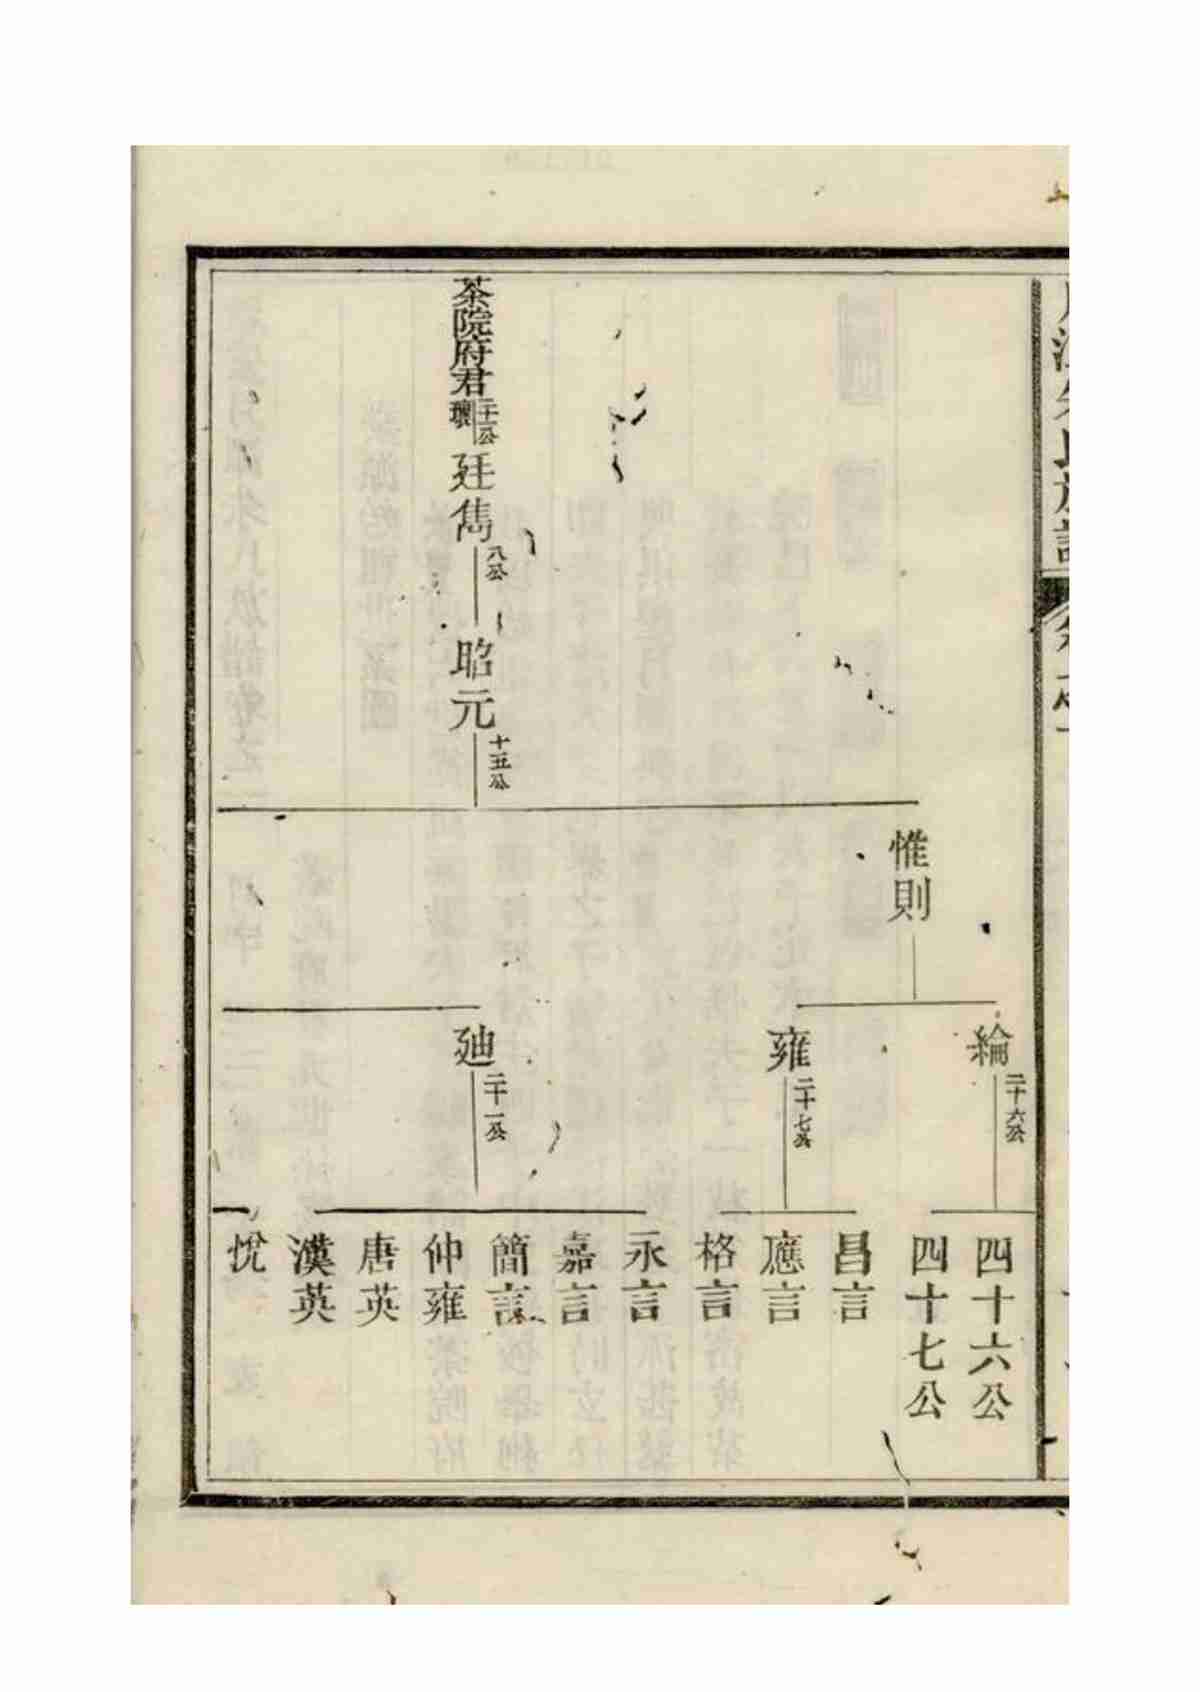 朱氏族譜
茶院府君
二十一公
瓌
廷雋
八公
昭元
十五公
惟則
綸
二十六公
雍
二十七公
廸
二十一公
四十六公
四十七公
昌言
應言
格言
永言
嘉言
簡言
仲雍
唐英
漢英
悅